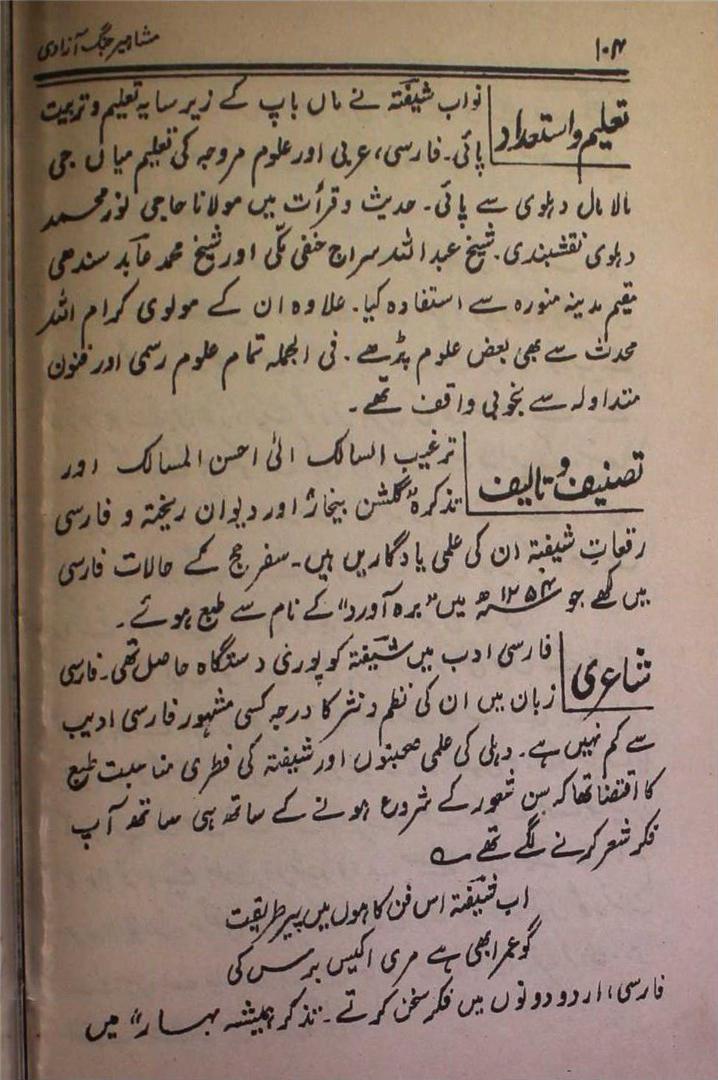 ۱۰۴ مشاہیر جنگ آزادی
تعلیم و استعداد نواب شیفتہ نے ماں باپ کے زیر سایہ تعلیم و تربیت
پائی۔ فارسی، عربی اور علوم مروجہ کی تعلیم میاں جی
مالا مال دہلوی سے پائی۔ حدیث و قرأت میں مولانا حاجی نور محمد
دہلوی نقشبندی۔ شیخ عبد اللہ سراج حنفی مکی اور شیخ محمد عابد سندھی
مقیم مدینہ منورہ سے استفادہ کیا۔ علاوہ ان کے مولوی کرام اللہ
محدث سے بھی بعض علوم پڑھے۔ فی الجملہ تمام علوم رسمی اور فنون
متداولہ سے بخوبی واقف تھے۔
تصنیف و تالیف ترغیب السالک الیٰ احسن المسالک اور
تذکرہ "گلشن بیخار" اور دیوان ریختہ و فارسی
رقعاتِ شیفتہ ان کی علمی یادگاریں ہیں۔ سفر حج کے حالات فارسی
میں لکھے جو ۱۲۵۴ھ میں "برہ آورد" کے نام سے طبع ہوئے۔
شاعری فارسی ادب میں شیفتہ کو پوری دستگاہ حاصل تھی۔ فارسی
زبان میں ان کی نظم و نثر کا درجہ کسی مشہور فارسی ادیب
سے کم نہیں ہے۔ دہلی کی علمی صحبتوں اور شیفتہ کی فطری مناسبت طبع
کا اقتضا تھا کہ سن شعور کے شروع ہونے کے ساتھ ہی ساتھ آپ
فکر شعر کرنے لگے تھے ؎
اب شیفتہ اس فن کا ہوں میں پیر طریقت
گو عمر ابھی ہے مری اکیس برس کی
فارسی، اردو دونوں میں فکر سخن کرتے۔ تذکرہ ہمیشہ بہار" میں